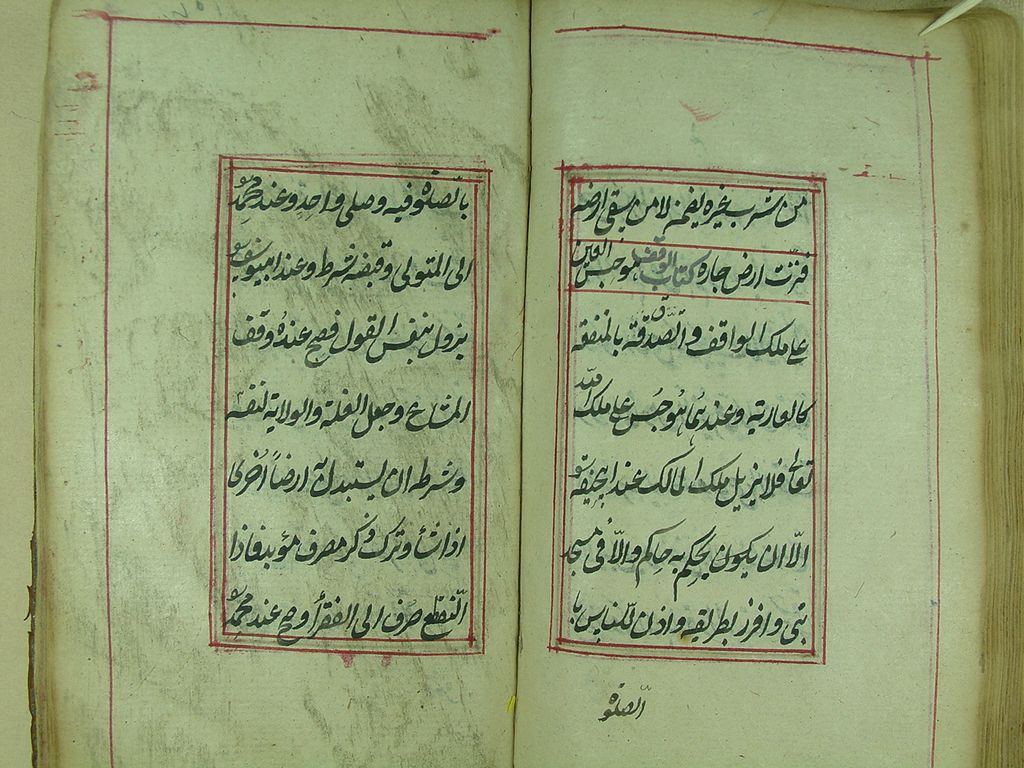 من شرب غيره يضمن لا من سقى ارضه
فنزت ارض جاره كتاب الوقف هو حبس العين
على ملك الواقف والصّدقة بالمنفقة
كالعارية وعندهما هو حبس على ملك الله
تعالى فلا يزيل ملك المالك عند ابيحنيفة
الّا ان يكون يحكم به حاكم والّا فى مسجد
بنى وافرز بطريقه واذن للناس با
الصّلوة
بالصّلوة فيه وصلى واحدٍ وعند محمد
الى المتولى وقبضه شرط وعند ابيوسف
يزول بنفس القول فصح عنده وقف
المشاع وجعل الغلة والولاية لنفسه
وشرطه ان يستبدل به ارضاً اخرى
اذا شأ وترك ذكر مصرف مؤبد فاذا
انقطع صرف الى الفقرأ وصح عند محمد